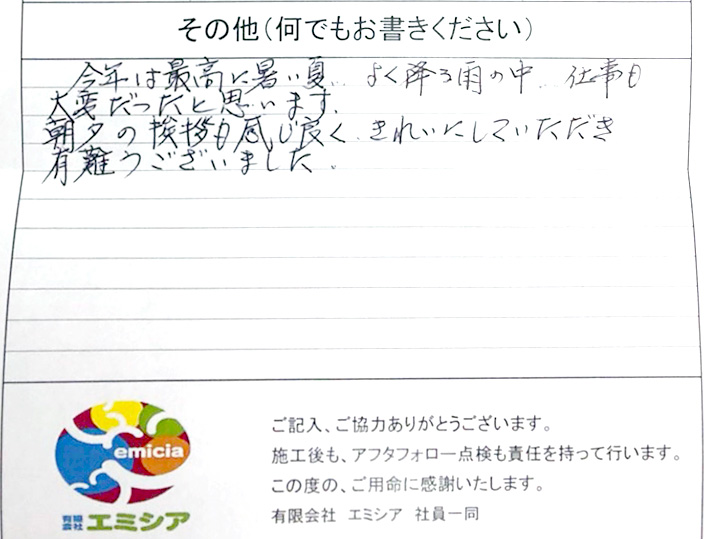 その他（何でもお書きください）
今年は最高に暑い夏、よく降る雨の中、仕事も
大変だったと思います。
朝夕の挨拶も感じ良く、きれいにしていただき
有難うございました。
emicia
有限会社 エミシア
ご記入、ご協力ありがとうございます。
施工後も、アフタフォロー点検も責任を持って行います。
この度の、ご用命に感謝いたします。
有限会社　エミシア　社員一同